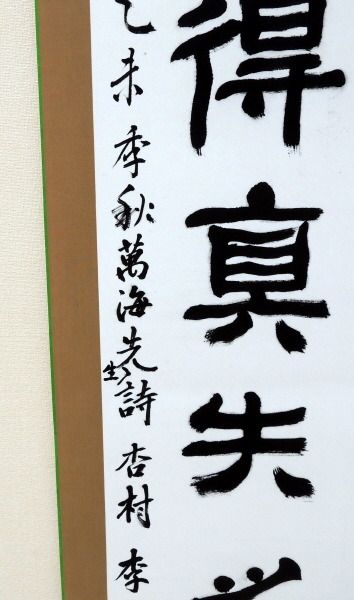 得真失
乙未季秋萬海先生詩杏村李